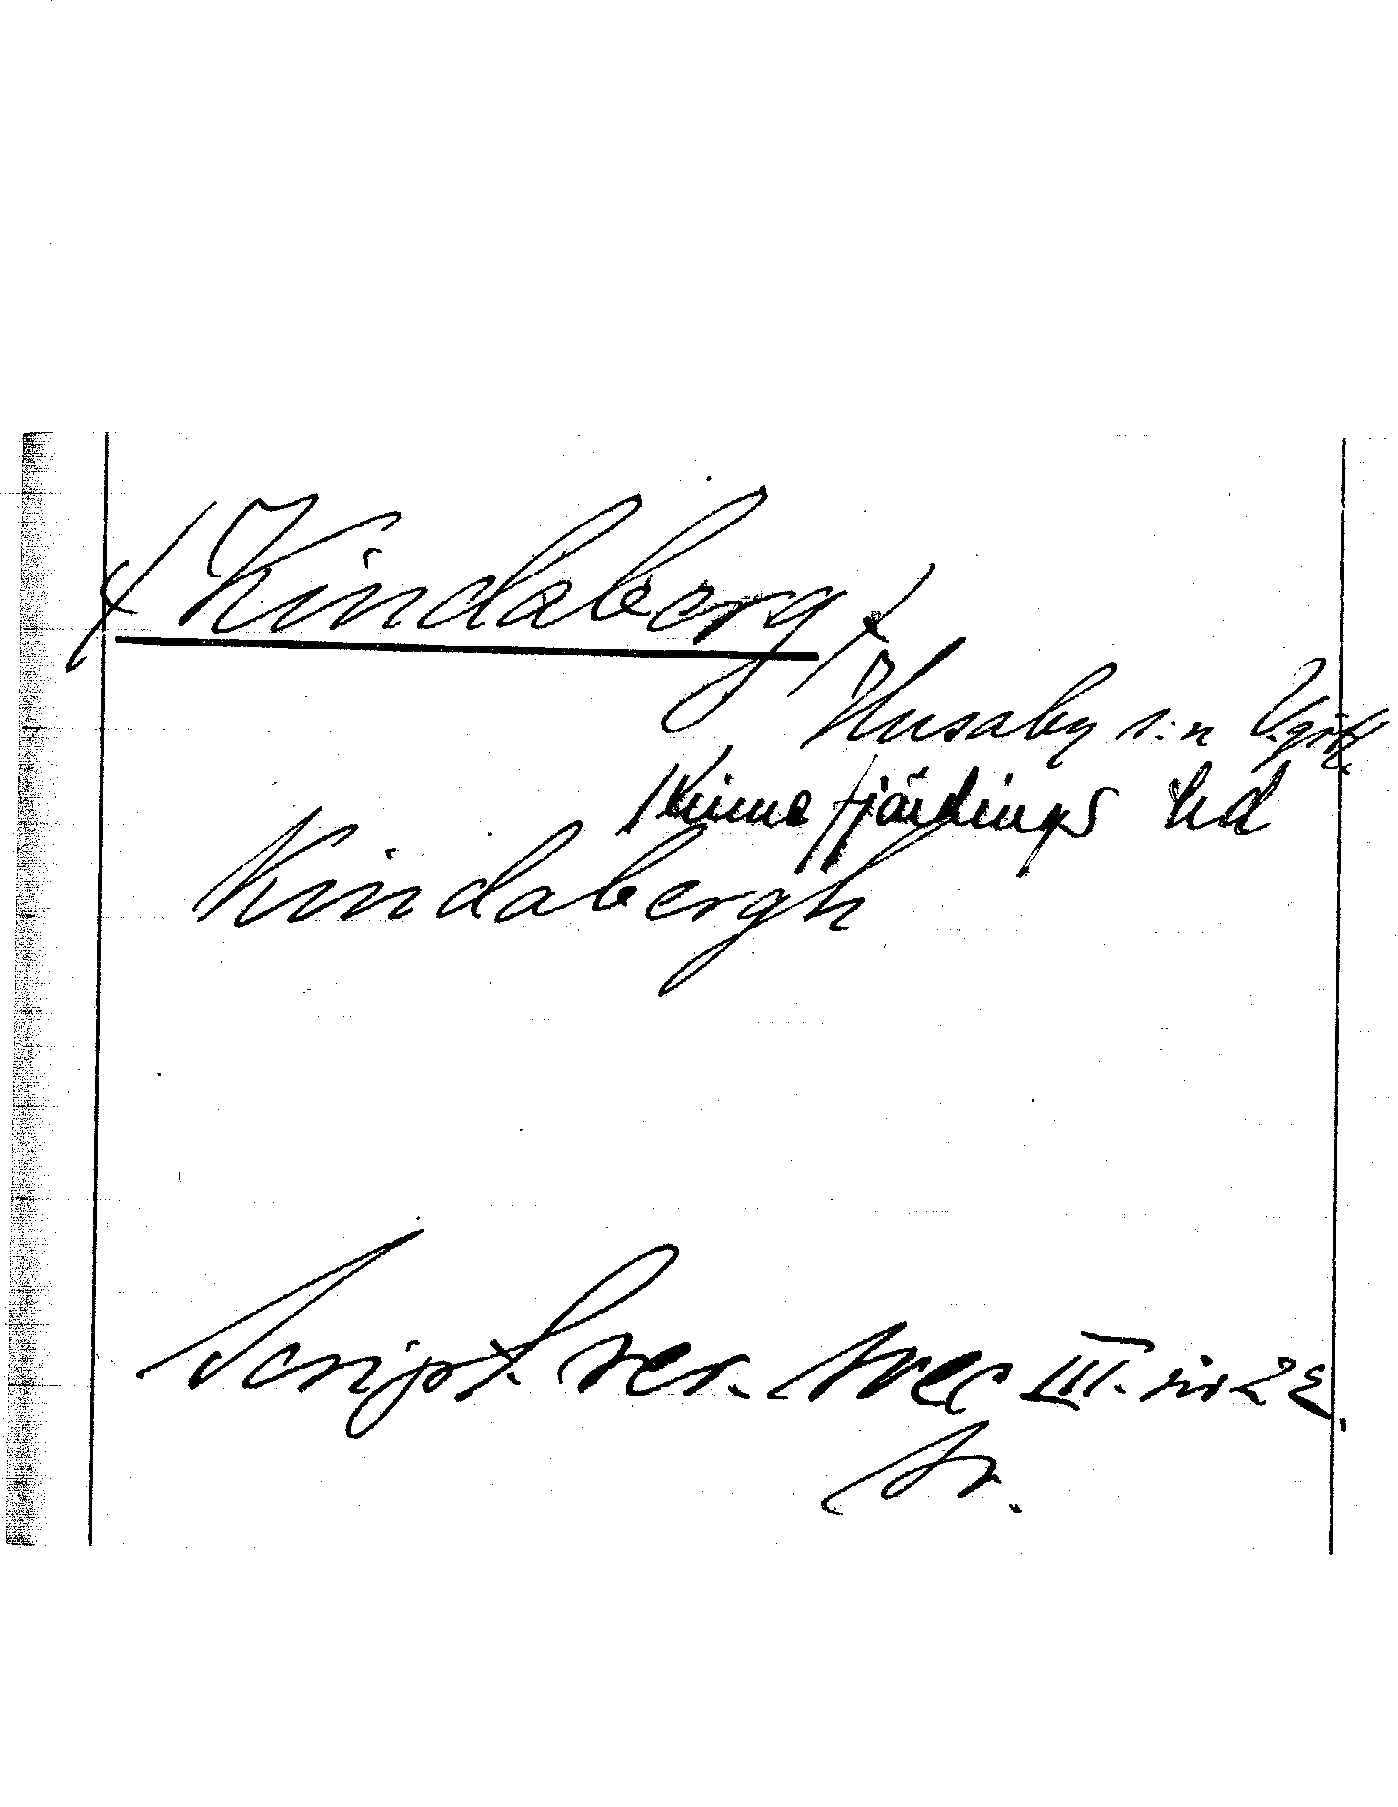 Kindaberg
Husaby s:n V.götl
Kinne fjärdings hd
Kindabergh
Script. rer. svec III. s. 22